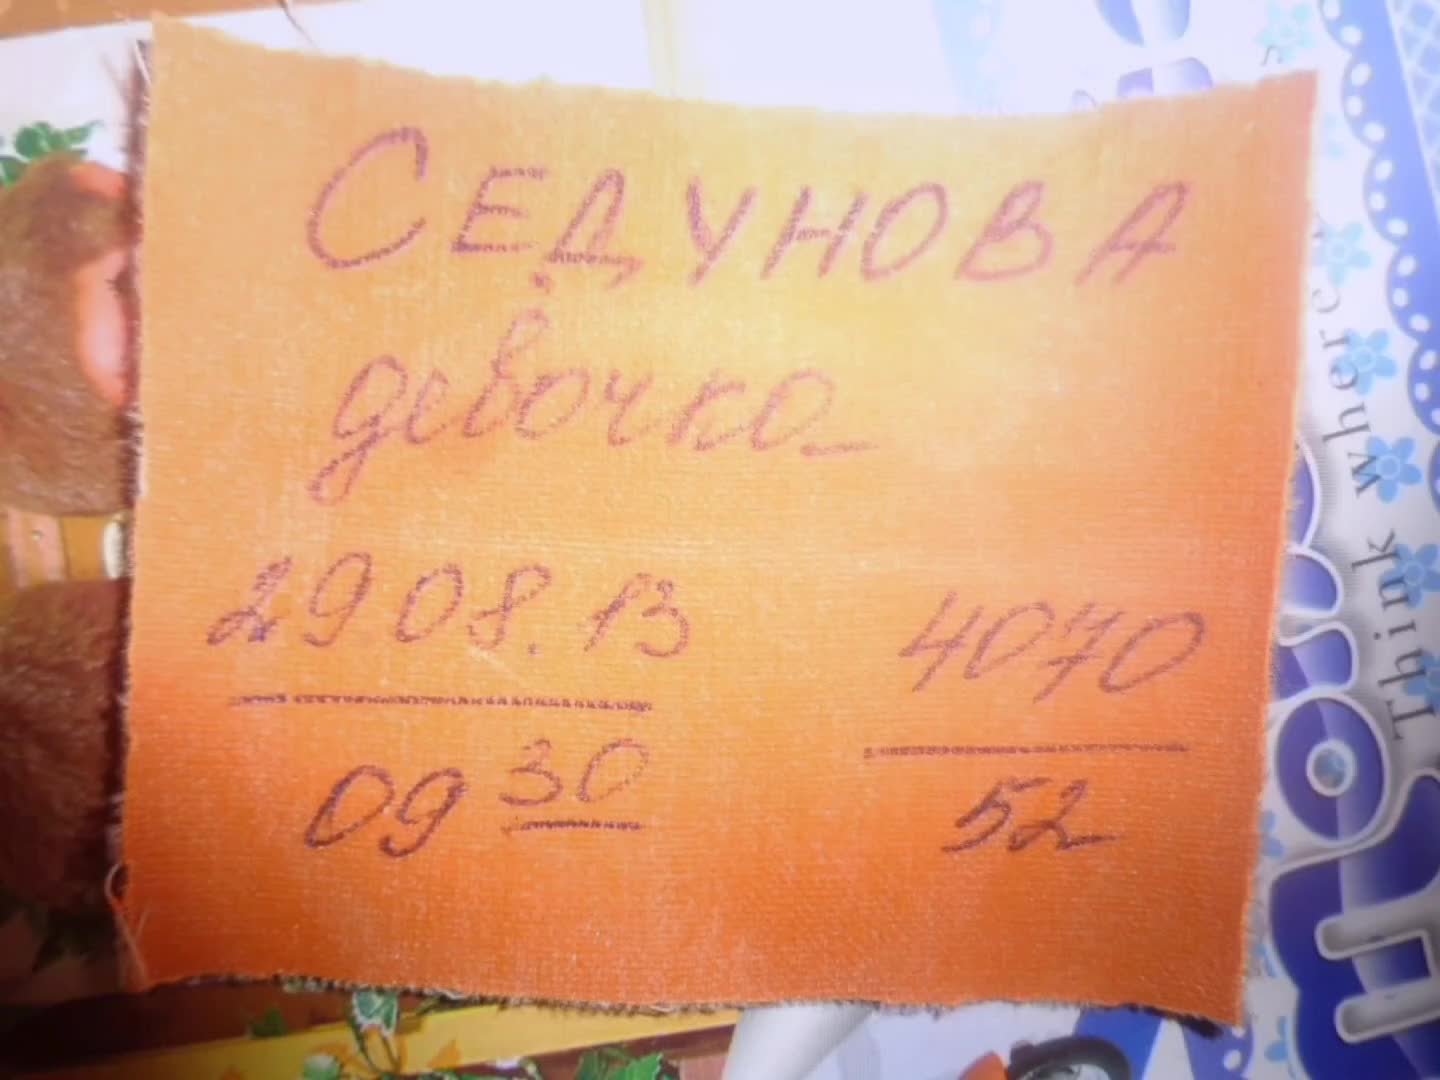 СЕДУНОВА
девочка
29 08. 13 4070
09 30 52
Think where